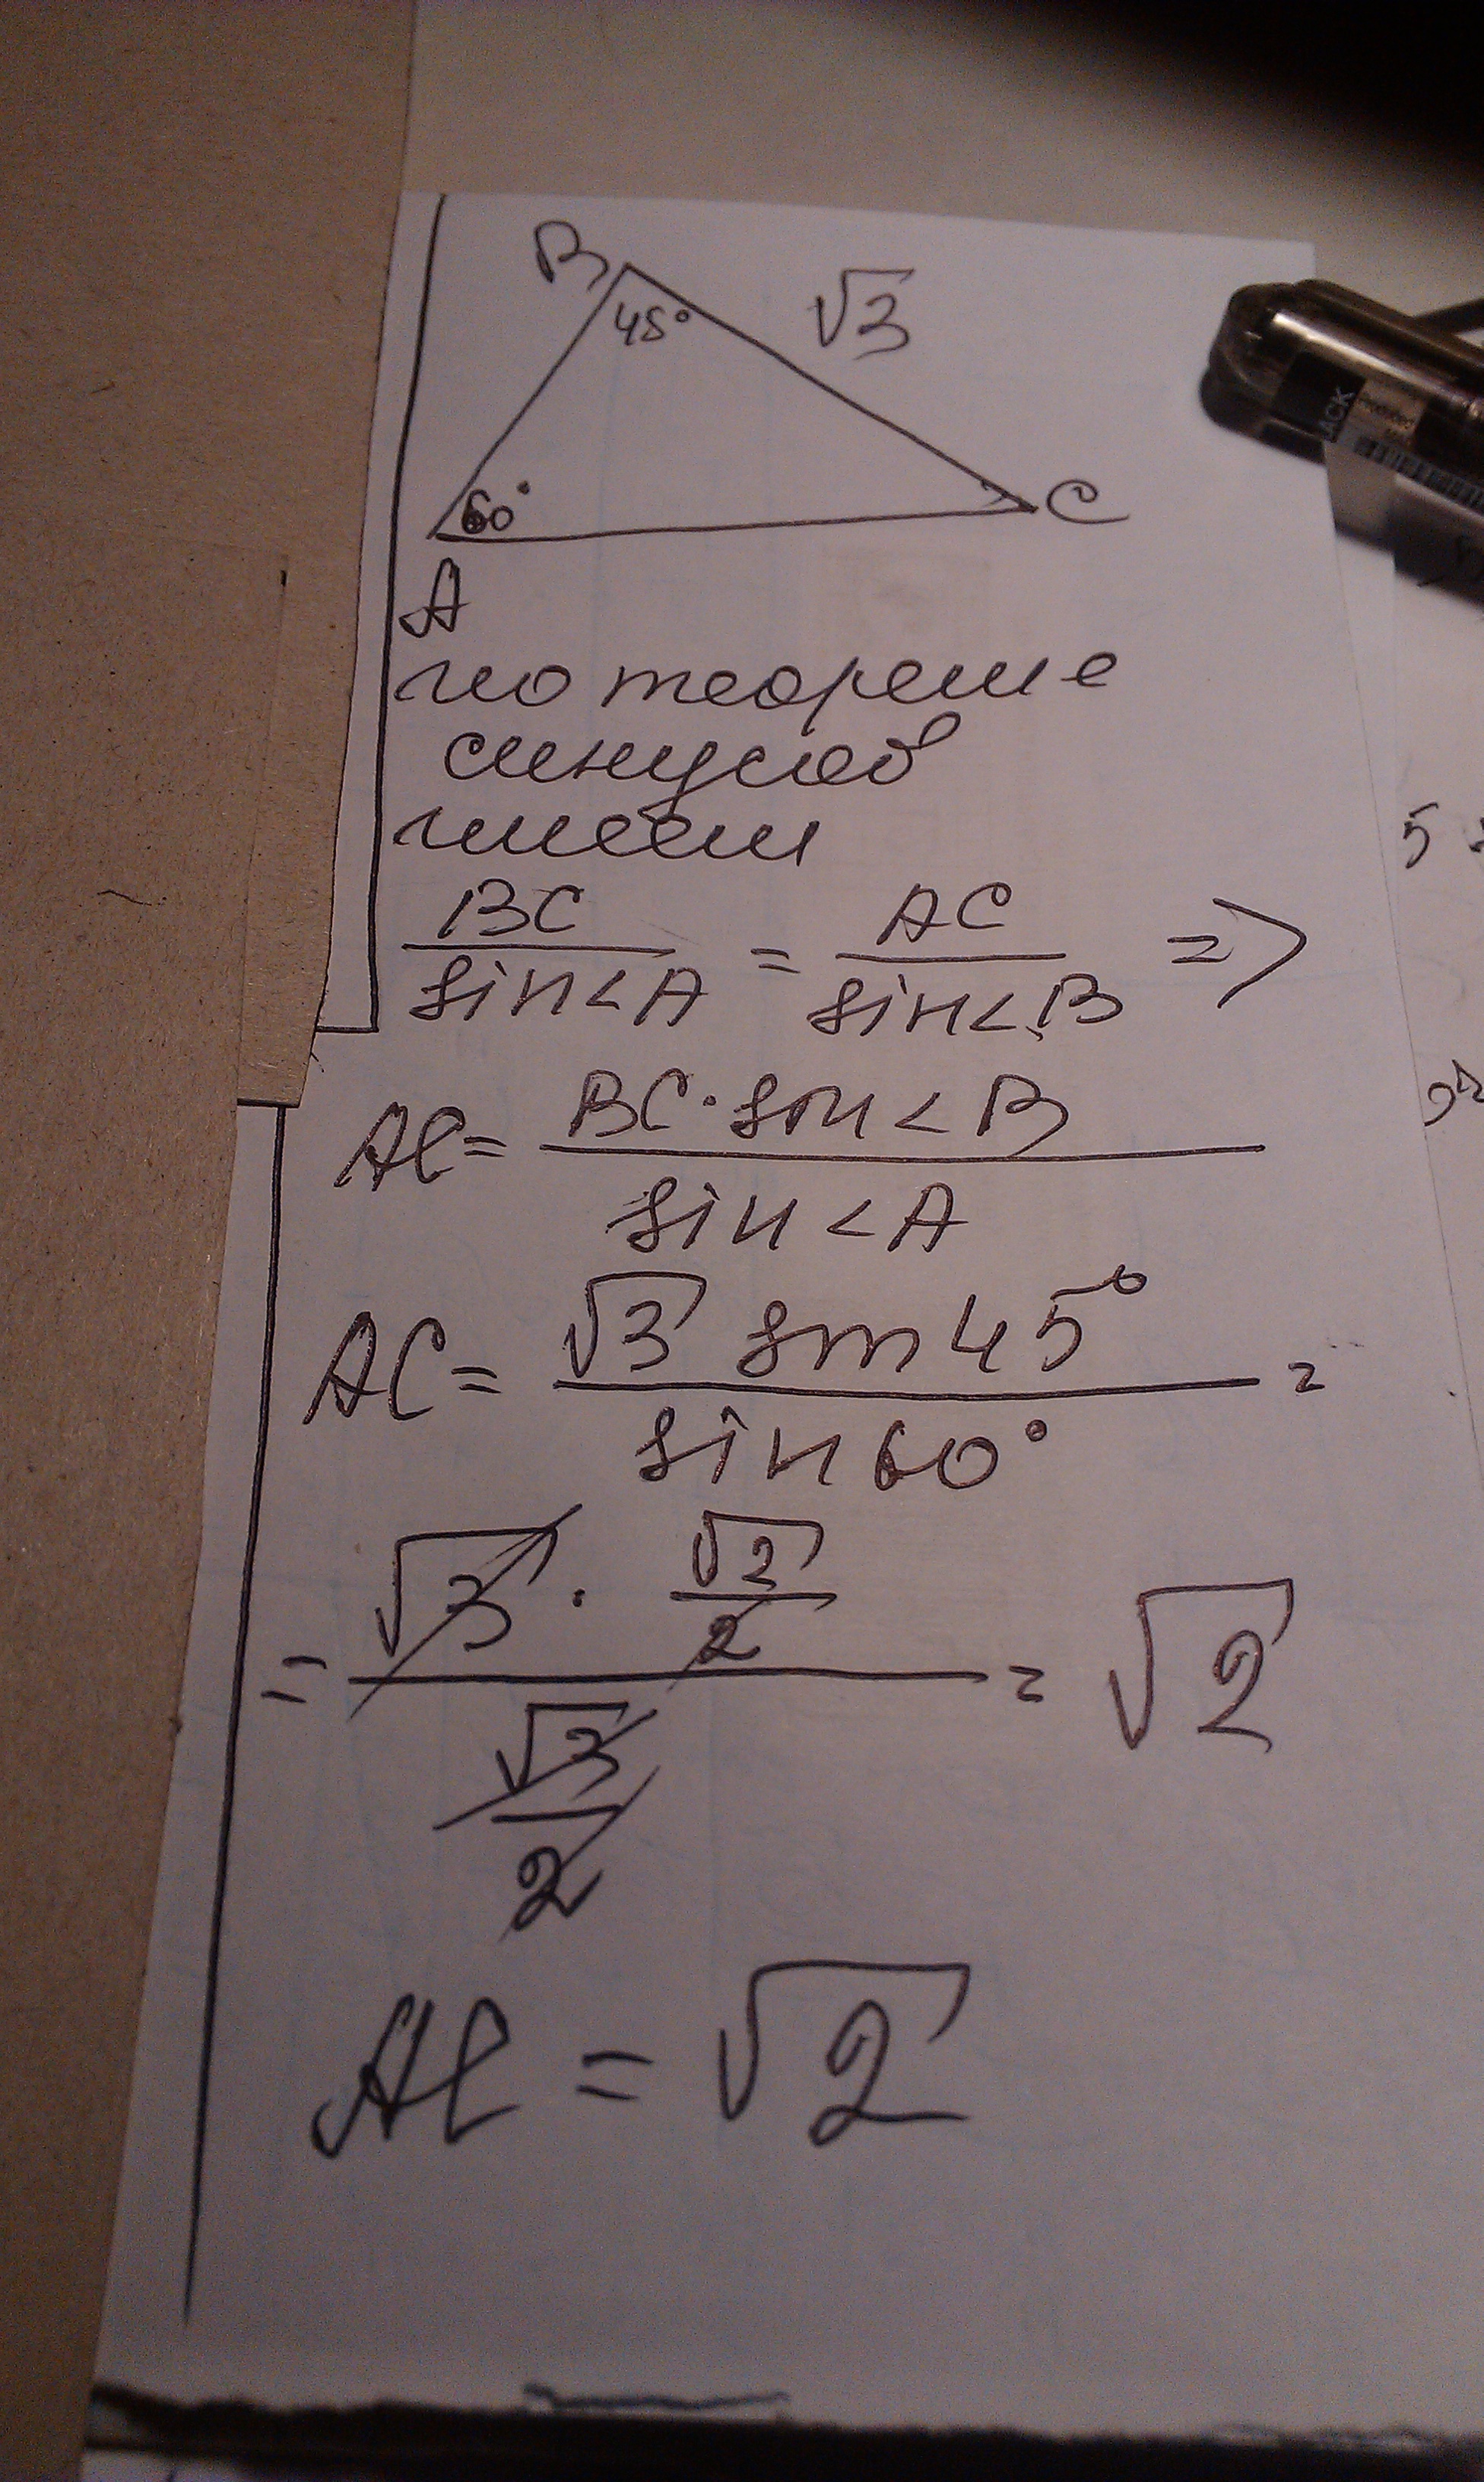 B
45°
√3
60°
C
A
по теореме
синусов
имеем
BC/sin<A = AC/sin<B =>
AC = BC·sin<B/sin<A
AC = √3 sin45°/sin60° =
= √3 · √2/2 / √3/2 = √2
AC = √2
5